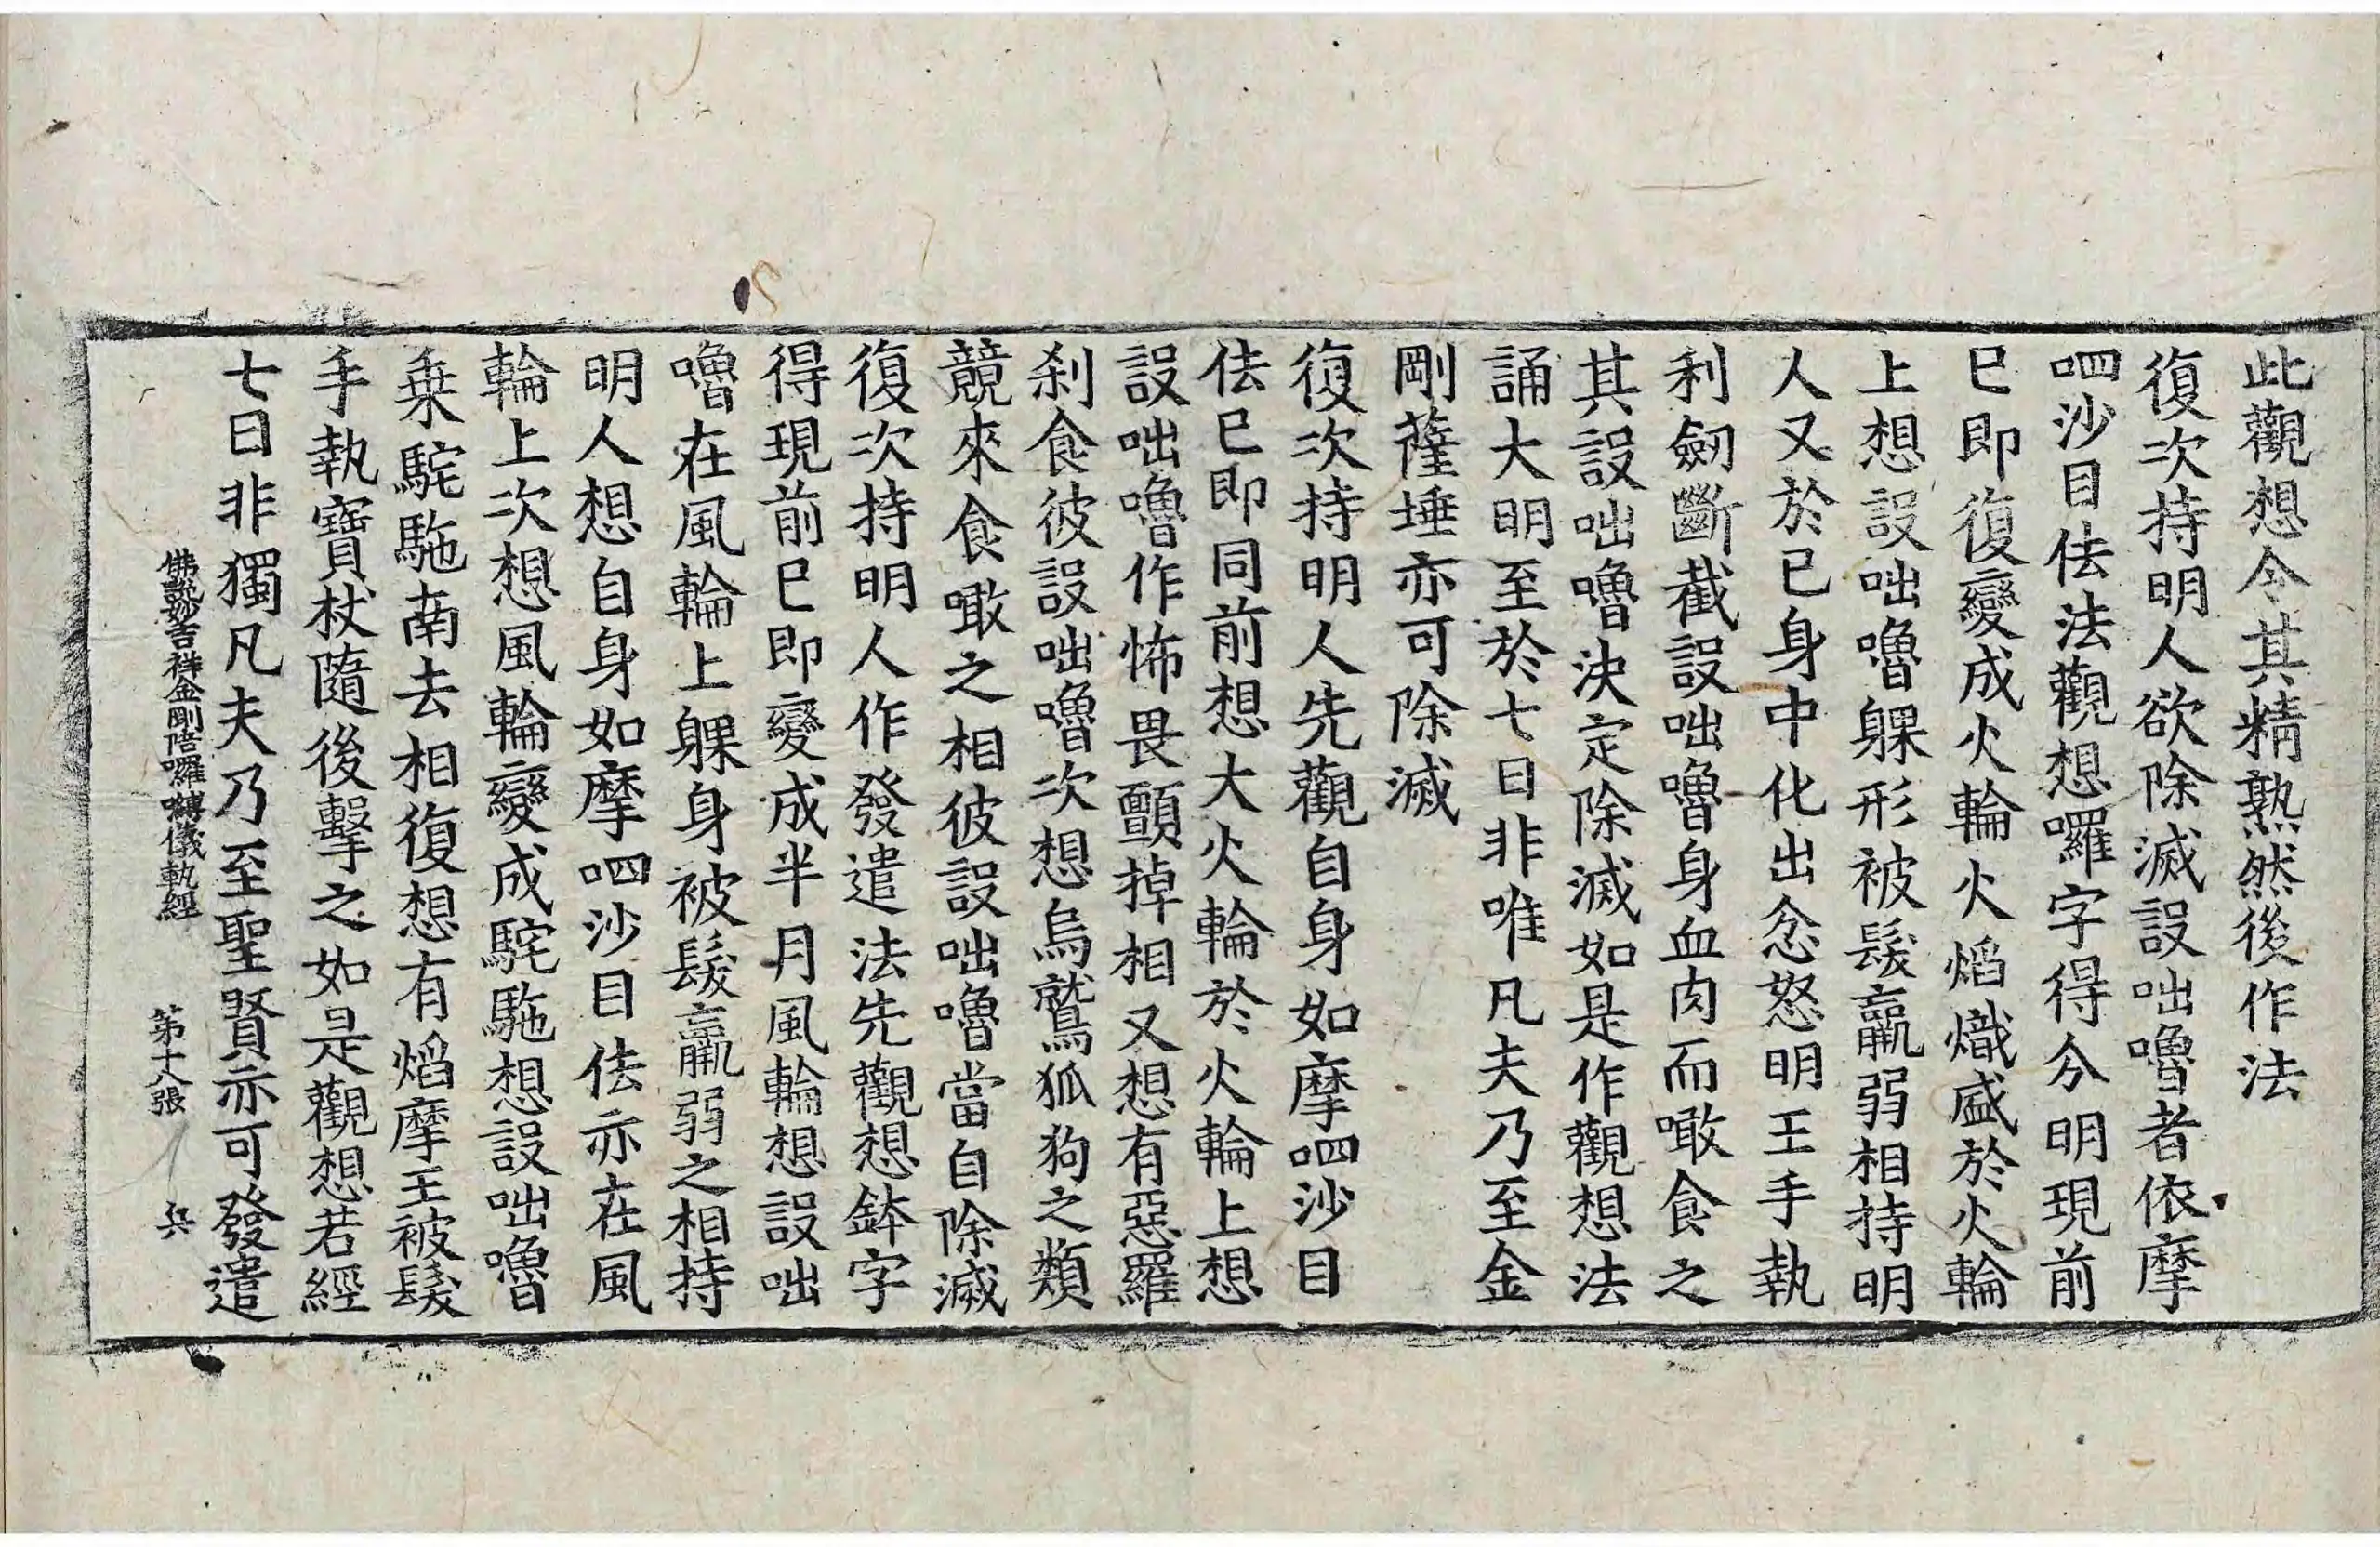 此觀想令其精熟然後作法
復次持明人欲除滅設咄嚕者依摩
呬沙目佉法觀想囉字得分明現前
已即復變成火輪火焰熾盛於火輪
上想設咄嚕躶形被髮羸弱相持明
人又於已身中化出忿怒明王手執
利劒斷截設咄嚕身血肉而噉食之
其設咄嚕決定除滅如是作觀想法
誦大明至於七日非唯凡夫乃至金
剛薩埵亦可除滅
復次持明人先觀自身如摩呬沙目
佉已即同前想大火輪於火輪上想
設咄嚕作怖畏顫掉相又想有惡羅
剎食彼設咄嚕次想烏鷲狐狗之類
競來食噉之相彼設咄嚕當自除滅
復次持明人作發遣法先觀想鉢字
得現前已即變成半月風輪想設咄
嚕在風輪上躶身被髮羸弱之相持
明人想自身如摩呬沙目佉亦在風
輪上次想風輪變成駞駞想設咄嚕
乗駞駞南去相復想有焰摩王被髮
手執寶杖隨後擊之如是觀想若經
七日非獨凡夫乃至聖賢亦可發遣
佛說妙吉祥金剛陪囉嚩儀軌經 第十八張 兵